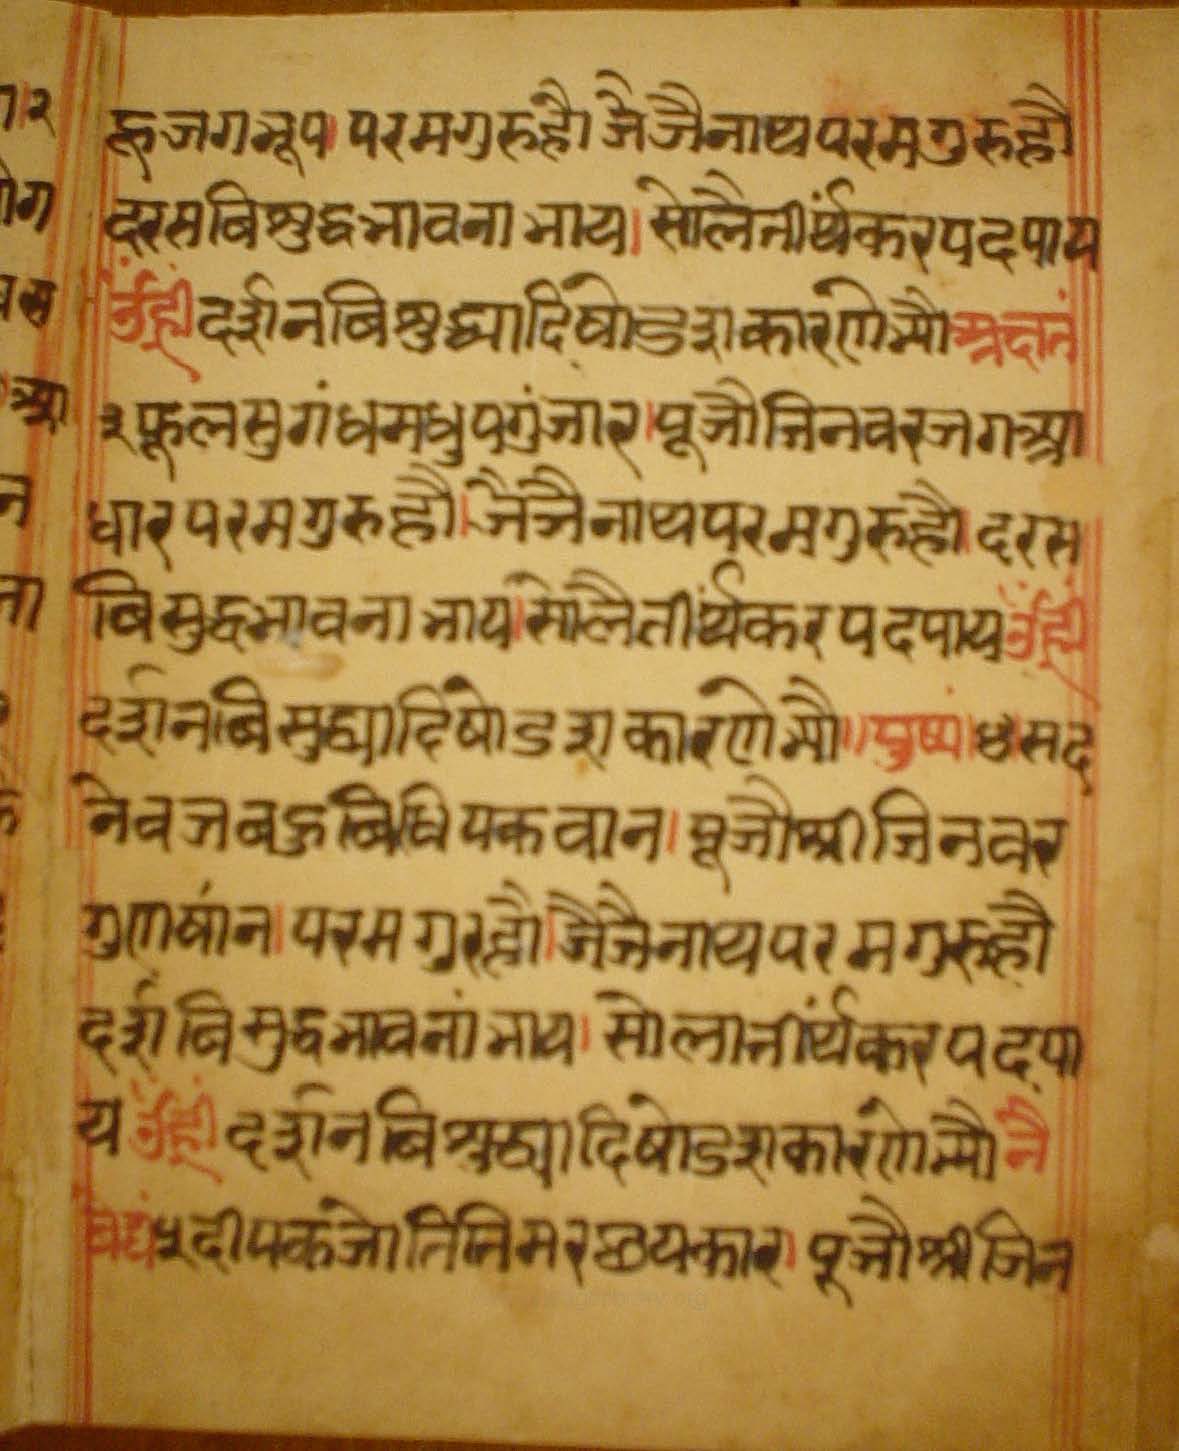 हूजगभूप। परमगुरुहौ। जैजैनाथपरमगुरुहौ
दरसविशुद्धभावनाभाय। सोलैतीर्थंकरपदपाय
उँह्रीं दर्शनविशुद्ध्यादिषोडशकारणेभ्यो अक्षतं
३ फूलसुगंधमधुपगुंजार। पूजौजिनवरजगआ
धारपरमगुरुहौ। जैजैनाथपरमगुरुहौ। दरस
विसुद्धभावनाभाय। सोलैतीर्थंकरपदपाय उँह्रीं
दर्शनविसुद्ध्यादिषोडशकारणेभ्यो ॥ पुष्पं ॥ ४ ॥ सद
नेवजबहुविधिपकवान। पूजौश्रीजिनवर
गुणषांन। परमगुरहौ। जैजैनाथपरमगुरुहौ
दर्शविसुद्धभावनांभाय। सोलातीर्थंकरपदपा
य उँह्रीं दर्शनविशुद्ध्यादिषोडशकारंणेभ्यो नै
वेद्यं ५ दीपकजोतितिमरछयकार। पूजौश्रीजिन